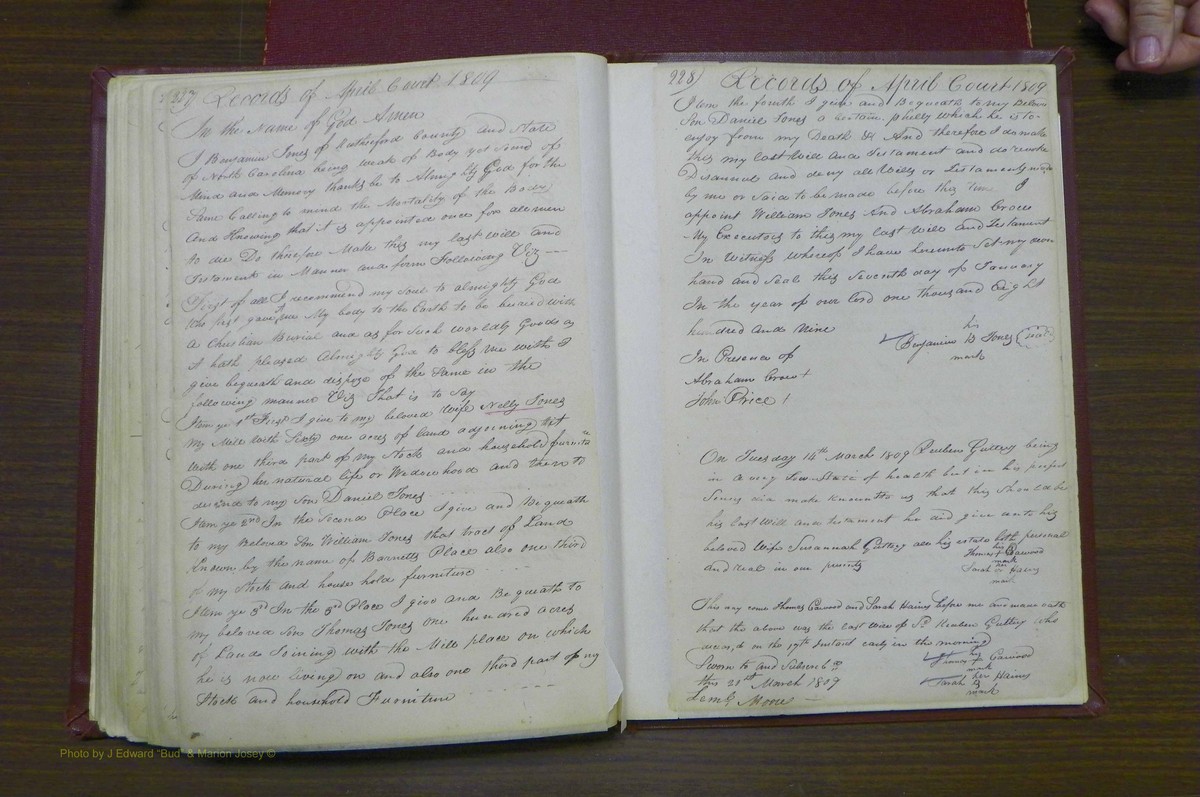 227) Records of April Court 1809
In the Name of God Amen
I Benjamin Jones of Rutherford County and State
of North Carolina being weak of Body yet sound of
Mind and Memory thanks be to Almighty God for the
Same Calling to mind the Mortality of the Body
And Knowing that it is appointed once for all men
to die Do therefore Make this my last will and
Testament in Manner and form Following Viz
First of all I recommend my soul to almighty God
who first gave it me My body to the Earth to be buried with
a Christian Burial and as for Such worldly Goods as
it hath pleased Almighty God to bless me with I
give bequeath and dispose of the Same in the
following manner Viz That is to say
Item ye 1st First I give to my beloved wife Nelly Jones
my Mill with Sixty one acres of land adjoining it
with one third part of my Stock and household furniture
During her natural life or Widowhood and then to
decend to my Son Daniel Jones
Item ye 2nd In the Second Place I give and Bequeath
to my Beloved Son William Jones that tract of Land
Known by the name of Barnetts Place also one third
of my Stock and house hold furniture
Item ye 3d In the 3d Place I give and Be queath to
my beloved Son Thomas Jones one hundred acres
of Land Joining with the Mill place on which
he is now living on and also one third part of my
Stock and household Furniture
228) Records of April Court 1809
Item the fourth I give and Bequeath to my Belov
Son Daniel Jones a certain philly which he is to
enjoy from my Death & And therefore I do make
this my last Will and Testament and do revoke
Disannul and deny all Wills or Testaments made
by me or said to be made before this time I
appoint William Jones And Abraham Crow
My Executors to this my last Will and Testament
In Witness whereof I have hereunto Set my own
hand and Seal this Seventh day of January
In the year of our lord one thousand Eight
hundred and Nine
his
Benjamin B Jones (seal)
mark
In Presence of
Abraham Crow +
John Price
On Tuesday 14th March 1809 Reuben Guttery being
in a very Low State of health but in his perfect
Sences did make known to us that this Should be
his last Will and testament he did give unto his
beloved Wife Susannah Guttery all his estate both personal
and real in our presents
his
Thomas Garwood
mark
Sarah Haines
mark
This day came Thomas Garwood and Sarah Haines before me and made oath
that the above was the last will of Sd Reuben Guttery who
deceasd on the 17th Instant early in the morning
Sworn to and Subscribd
this 21st March 1809
Leml Moore
his
Thomas Garwood
mark
Sarah her Haines
mark
Photo by J Edward "Bud" & Marion Josey ©